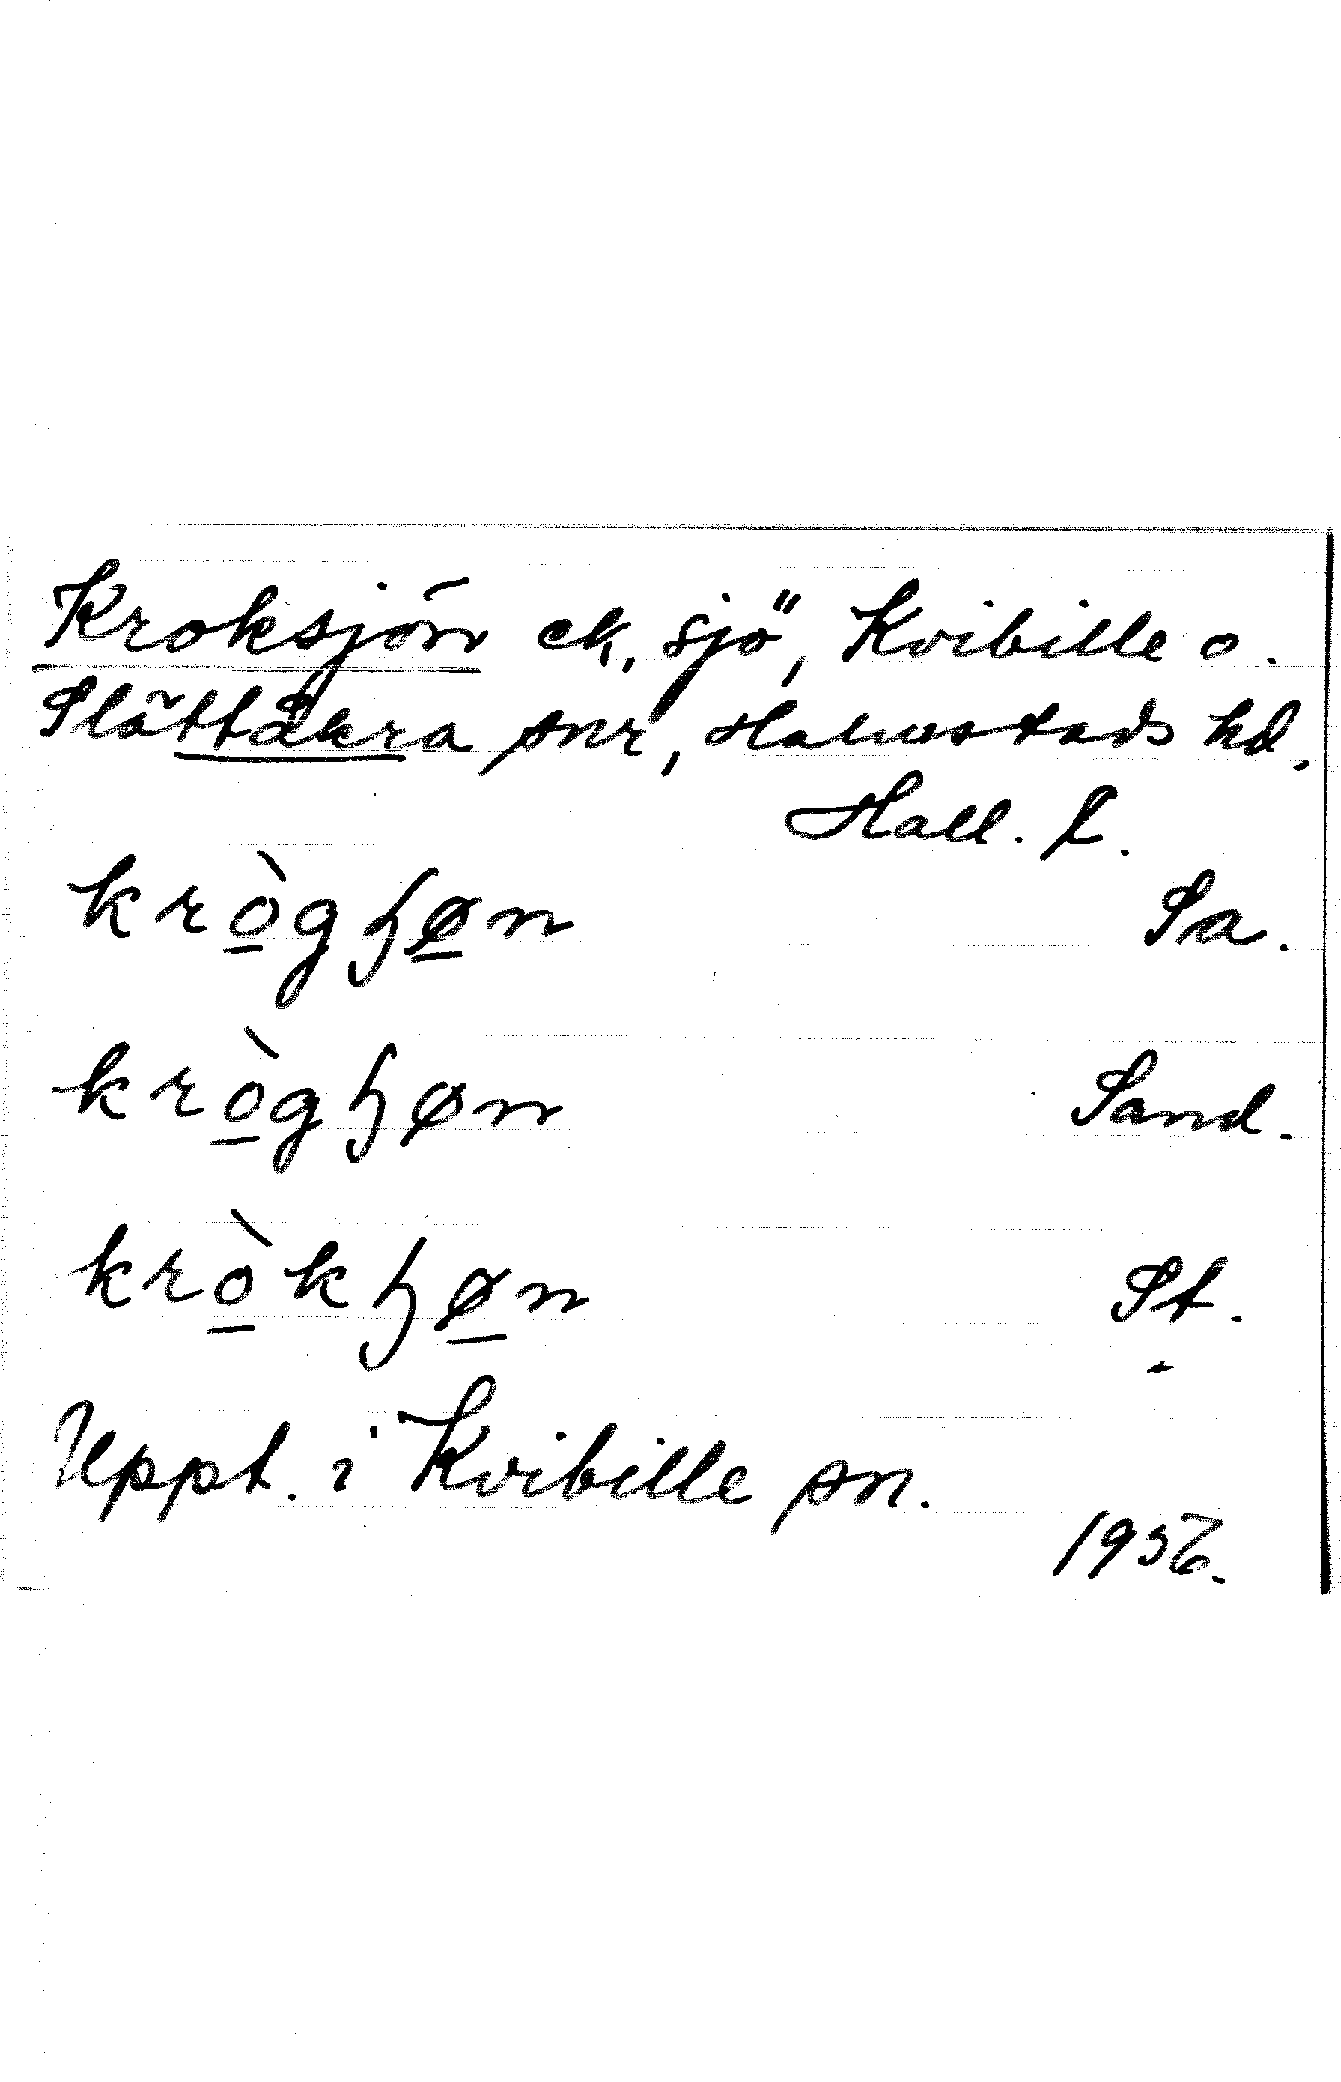 Kroksjön ek. sjö, Kvibille o.
Slättåkra snr, Halmstads hd.
Hall. l.
krò̠gɧø̠n Sa.
krò̠gɧøn Sand.
krò̠kɧø̠n St.
Uppt. i Kvibille sn.
1956.